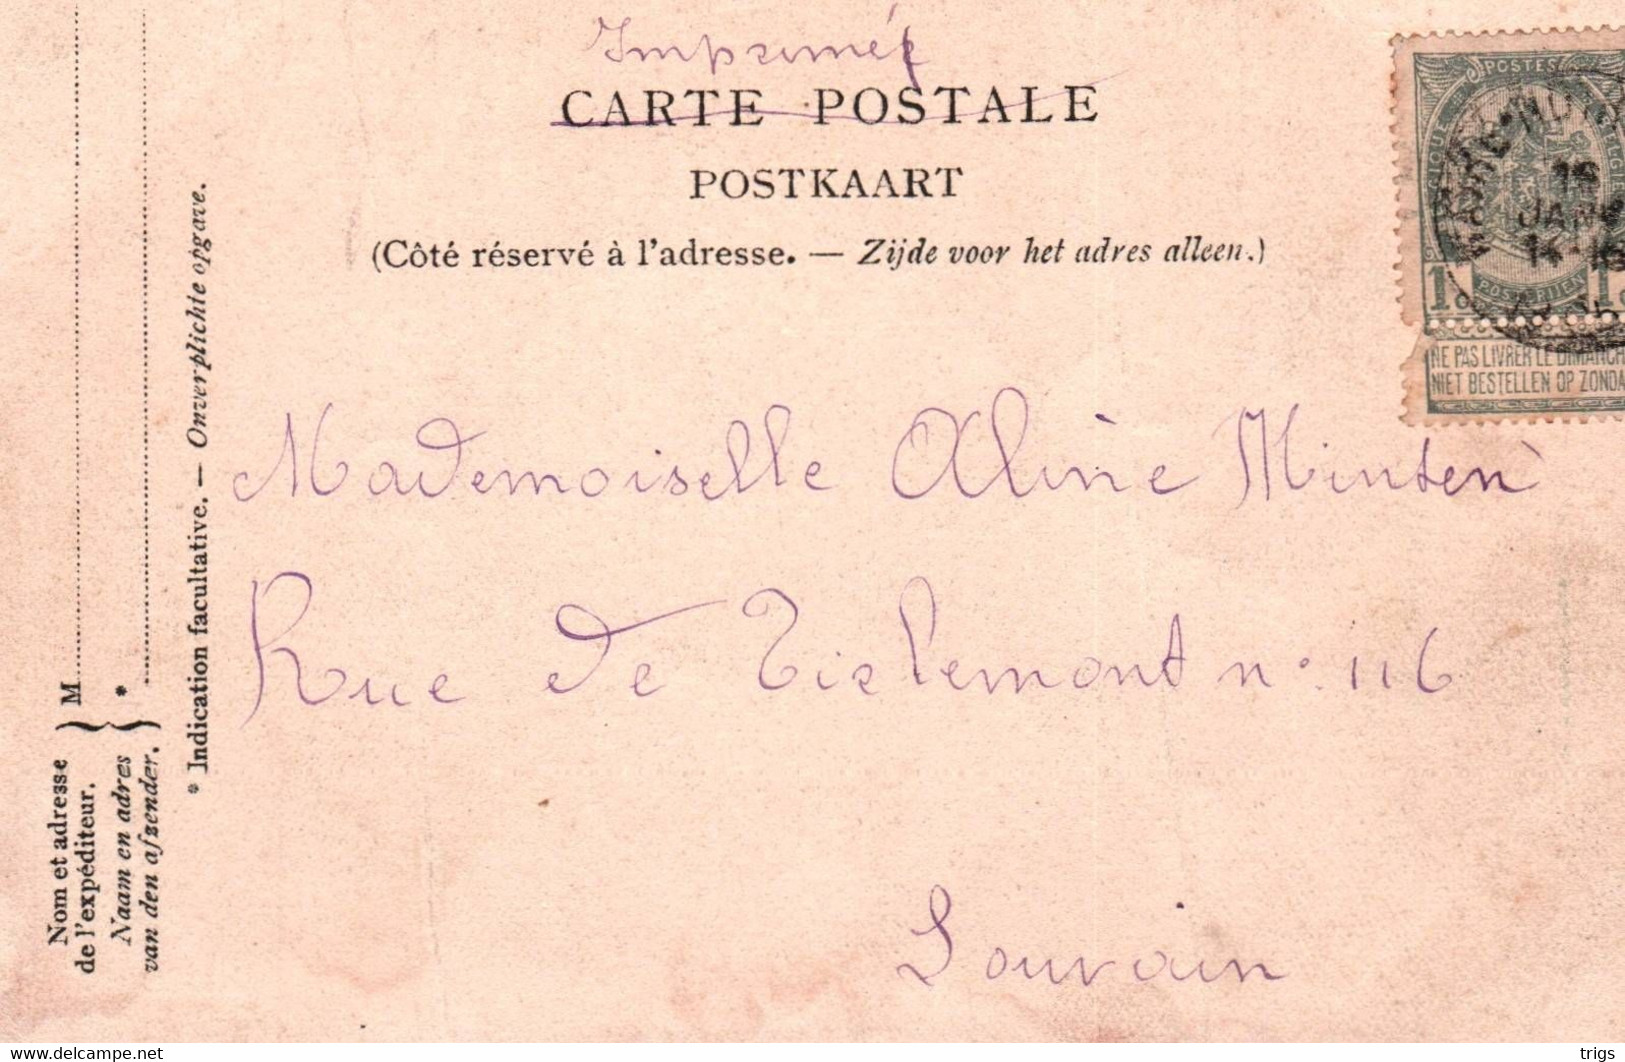 Imprimé
CARTE POSTALE
POSTKAART
(Côté réservé à l'adresse. — Zijde voor het adres alleen.)
POSTES
POSTERIJEN
16
JANV
14-16
NE PAS LIVRER LE DIMANCH
NIET BESTELLEN OP ZONDA
Mademoiselle Aline Minten
Rue de Tirlemont n° 116
Louvain
Nom et adresse
de l'expéditeur.
Naam en adres
van den afzender.
M
*
* Indication facultative. — Onverplichte opgave.
delcampe.net
trigs